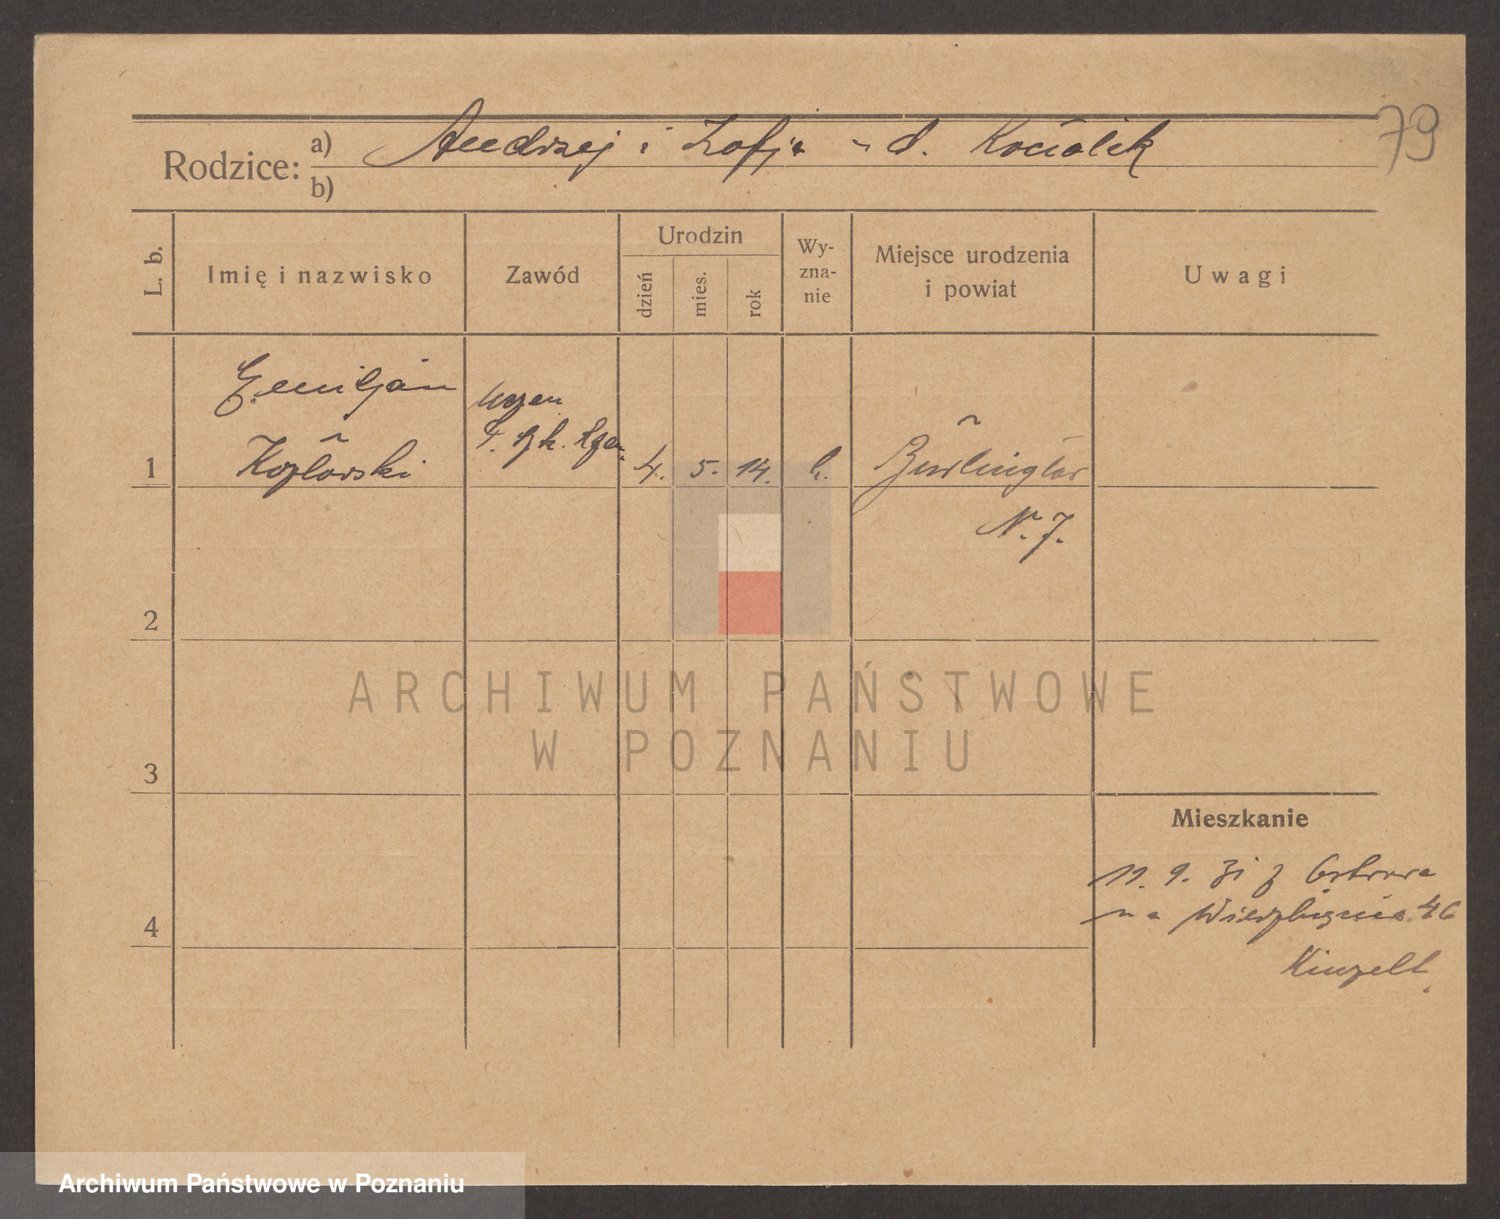 79
Rodzice: a) Andrzej i Zofja
b)
L. b.
Imię i nazwisko
Zawód
Urodzin
dzień
mies.
rok
Wy-
zna-
nie
Miejsce urodzenia
i powiat
Uwagi
Emiljan
uczeń
1 Kozłowski 4. 5. 14. k. Burlington
N. J.
2
3
4
Mieszkanie
11. 9. 31 z Ostrowa
na Wierzbięcice 46
Kinzelt
ARCHIWUM PAŃSTWOWE
W POZNANIU
Archiwum Państwowe w Poznaniu